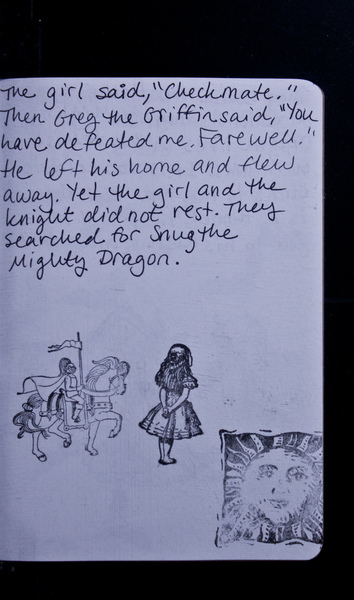 The girl said, "Checkmate."
Then Greg the Griffin said, "You
have defeated me. Farewell."
He left his home and flew
away. Yet the girl and the
knight did not rest. They
searched for Snug the
Mighty Dragon.